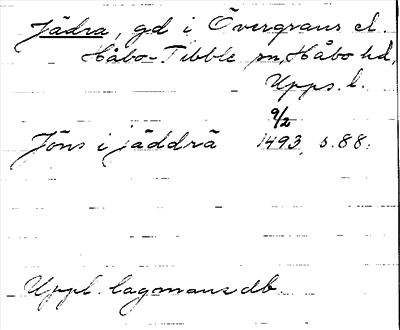 Jädra, gd i Övergrans el.
Håbo-Tibble sn, Håbo hd,
Upps. l.
9/2
Jöns i jäddrä 1493, s. 88.
Uppl. lagmansdb.